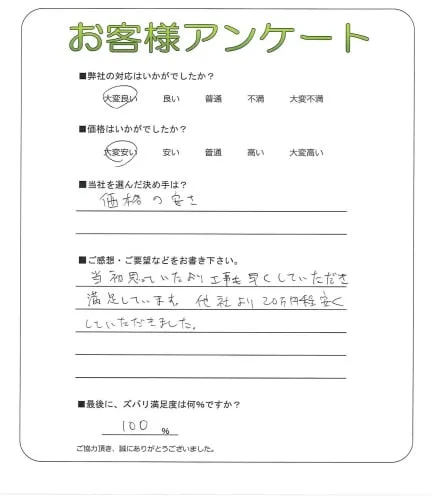 お客様アンケート
■弊社の対応はいかがでしたか？
大変良い 良い 普通 不満 大変不満
■価格はいかがでしたか？
大変安い 安い 普通 高い 大変高い
■当社を選んだ決め手は？
価格の安さ
■ご感想・ご要望などをお書き下さい。
当初思っていたより工事も早くしていただき
満足しています。他社より20万円程安く
していただきました。
■最後に、ズバリ満足度は何％ですか？
100 %
ご協力頂き、誠にありがとうございました。